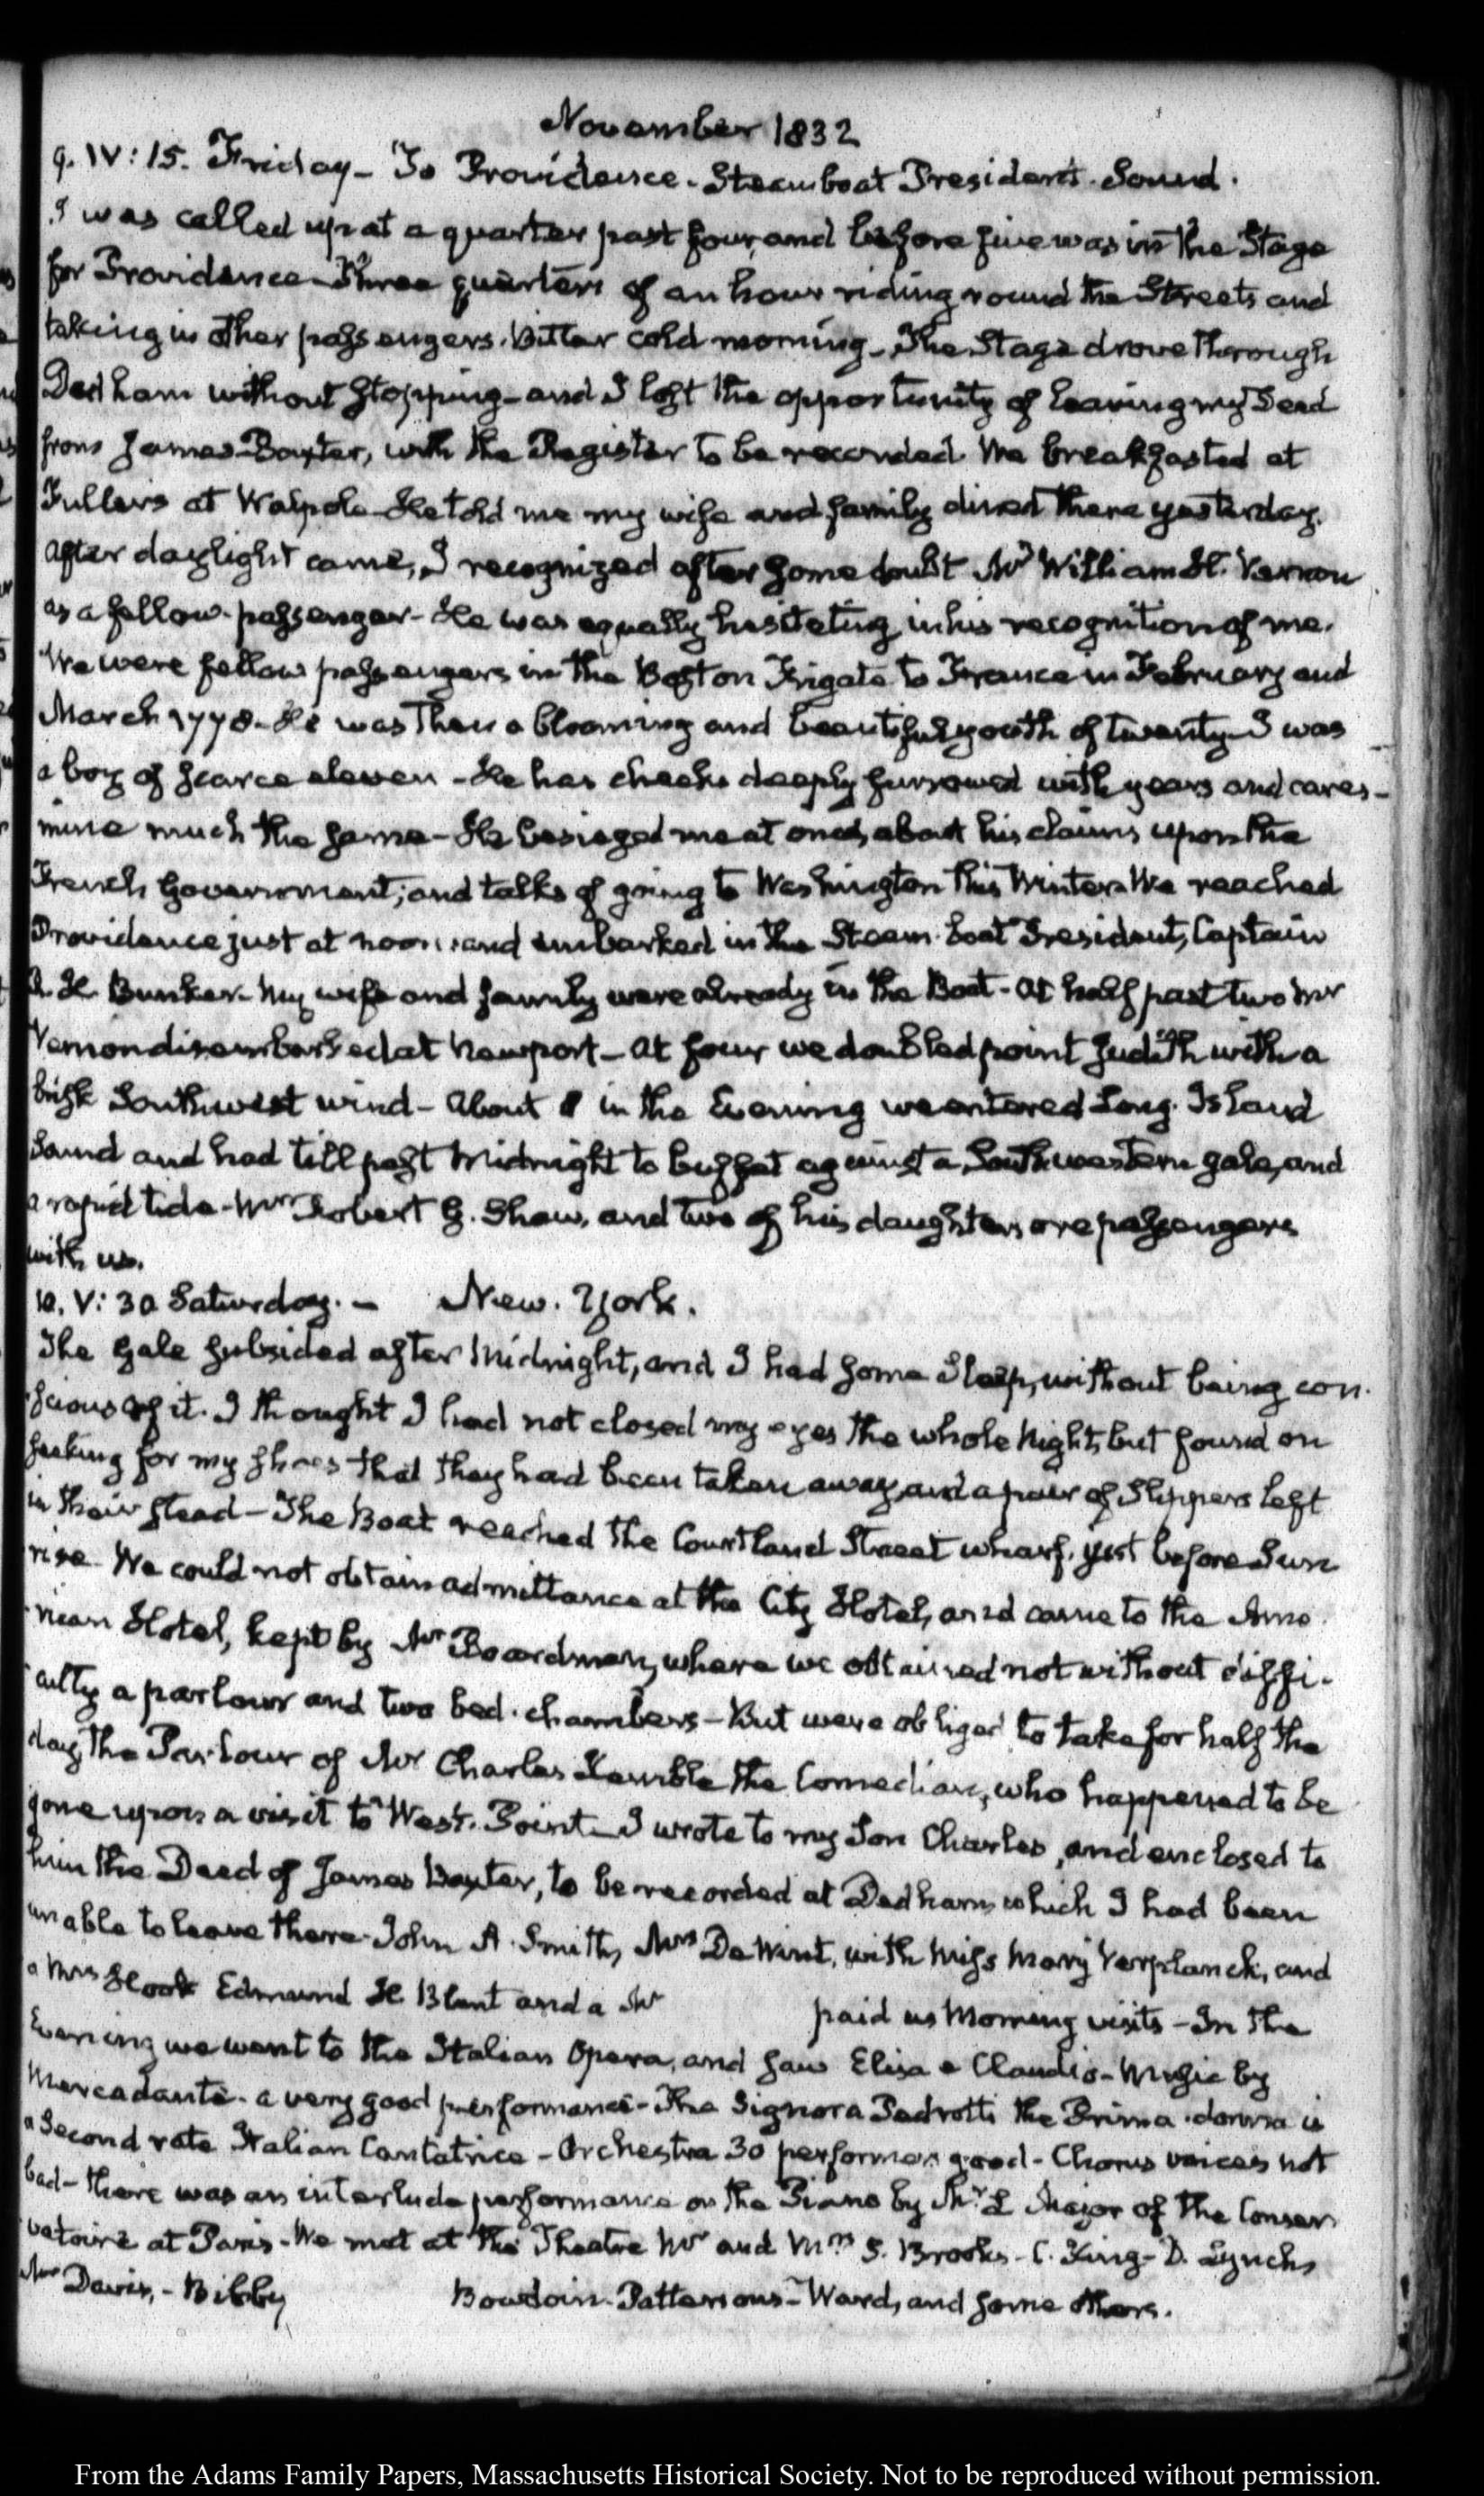 November 1832
9. IV: 15. Friday – To Providence. Steamboat President. Sound.
I was called up at a quarter past four, and before five was in the Stage
for Providence – Three quarters of an hour riding round the Streets and
taking in other passengers. Bitter cold morning – The Stage drove through
Dedham without stopping – and I lost the opportunity of leaving my Deed
from James Baxter, with the Register to be recorded. We breakfasted at
Fullers at Walpole – He told me my wife and family dined there yesterday.
After daylight came, I recognized after some doubt Mr William H. Vernon
as a fellow-passenger – He was equally hesitating in his recognition of me.
We were fellow passengers in the Boston Frigate to France in February and
March 1778 – He was then a blooming and beautiful youth of twenty – I was
a boy of scarce eleven – He has cheeks deeply furrowed with years and cares –
mine much the same – He besieged me at once, about his claims upon the
French Government; and talks of going to Washington this Winter. We reached
Providence just at noon; and embarked in the Steam-boat President, Captain
R. H. Bunker. My wife and family were already in the Boat – At half past two Mr
Vernon disembarked at Newport – At four we doubled point Judith with a
brisk Southwest wind – About 8 in the Evening we entered Long-Island
Sound and had till past Midnight to buffet against a Southwestern gale, and
a rapid tide – Mr Robert G. Shaw, and two of his daughters are passengers
with us.
10. V: 30 Saturday. – New-York.
The gale subsided after Midnight, and I had some Sleep, without being con-
scious of it. I thought I had not closed my eyes the whole Night, but found on
seeking for my shoes that they had been taken away, and a pair of Slippers left
in their stead – The Boat reached the Courtland Street wharf, just before Sun
rise. We could not obtain admittance at the City Hotel, and came to the Ame-
rican Hotel, kept by Mr Boardman, where we obtained not without diffi-
culty a parlour and two bed-chambers – But were obliged to take for half the
day, the Parlour of Mr Charles Kemble the Comedian, who happened to be
gone upon a visit to West-Point – I wrote to my Son Charles, and enclosed to
him the Deed of James Baxter, to be recorded at Dedham which I had been
unable to leave there. John A. Smith, Mrs De Wint, with Miss Mary Verplanck, and
a Mrs Hook Edmund H. Blunt and a Mr paid us Morning visits – In the
Evening we went to the Italian Opera, and saw Elisa e Claudio – Music by
Mercadante. a very good performance – The Signora Pedrotti the Prima-donna is
a Second rate Italian Cantatrice – Orchestra 30 performers good – Chorus voices not
bad – there was an interlude performance on the Piano by Mr L Major of the Conser-
vatoire at Paris – We met at the Theatre Mr and Mrs S. Brooks – C. King – D. Lynch,
Mr Davis, – Bibby Bowdoin. Pattersons – Ward, and some others.
From the Adams Family Papers, Massachusetts Historical Society. Not to be reproduced without permission.